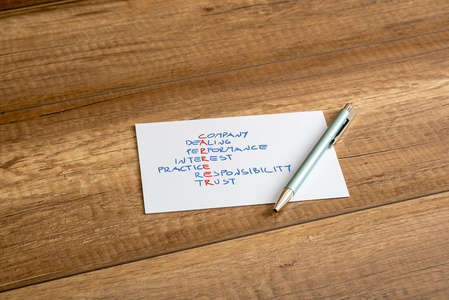 COMPANY
DEALING
PERFORMANCE
INTEREST
PRACTICE
RESPONSIBILITY
TRUST